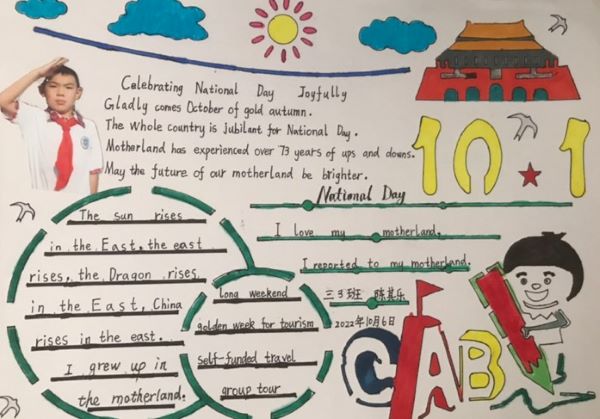 Celebrating National Day Joyfully
Gladly comes October of gold autumn.
The whole country is jubilant for National Day.
Motherland has experienced over 73 years of ups and downs.
May the future of our motherland be brighter.
10 ★ 1
National Day
I love my motherland.
I reported to my motherland.
The sun rises
in the East, the east
rises, the Dragon rises
in the East, China
rises in the east.
I grew up in
the motherland.
long weekend
golden week for tourism
self-funded travel
group tour
三3班
2022年10月6日
C A B